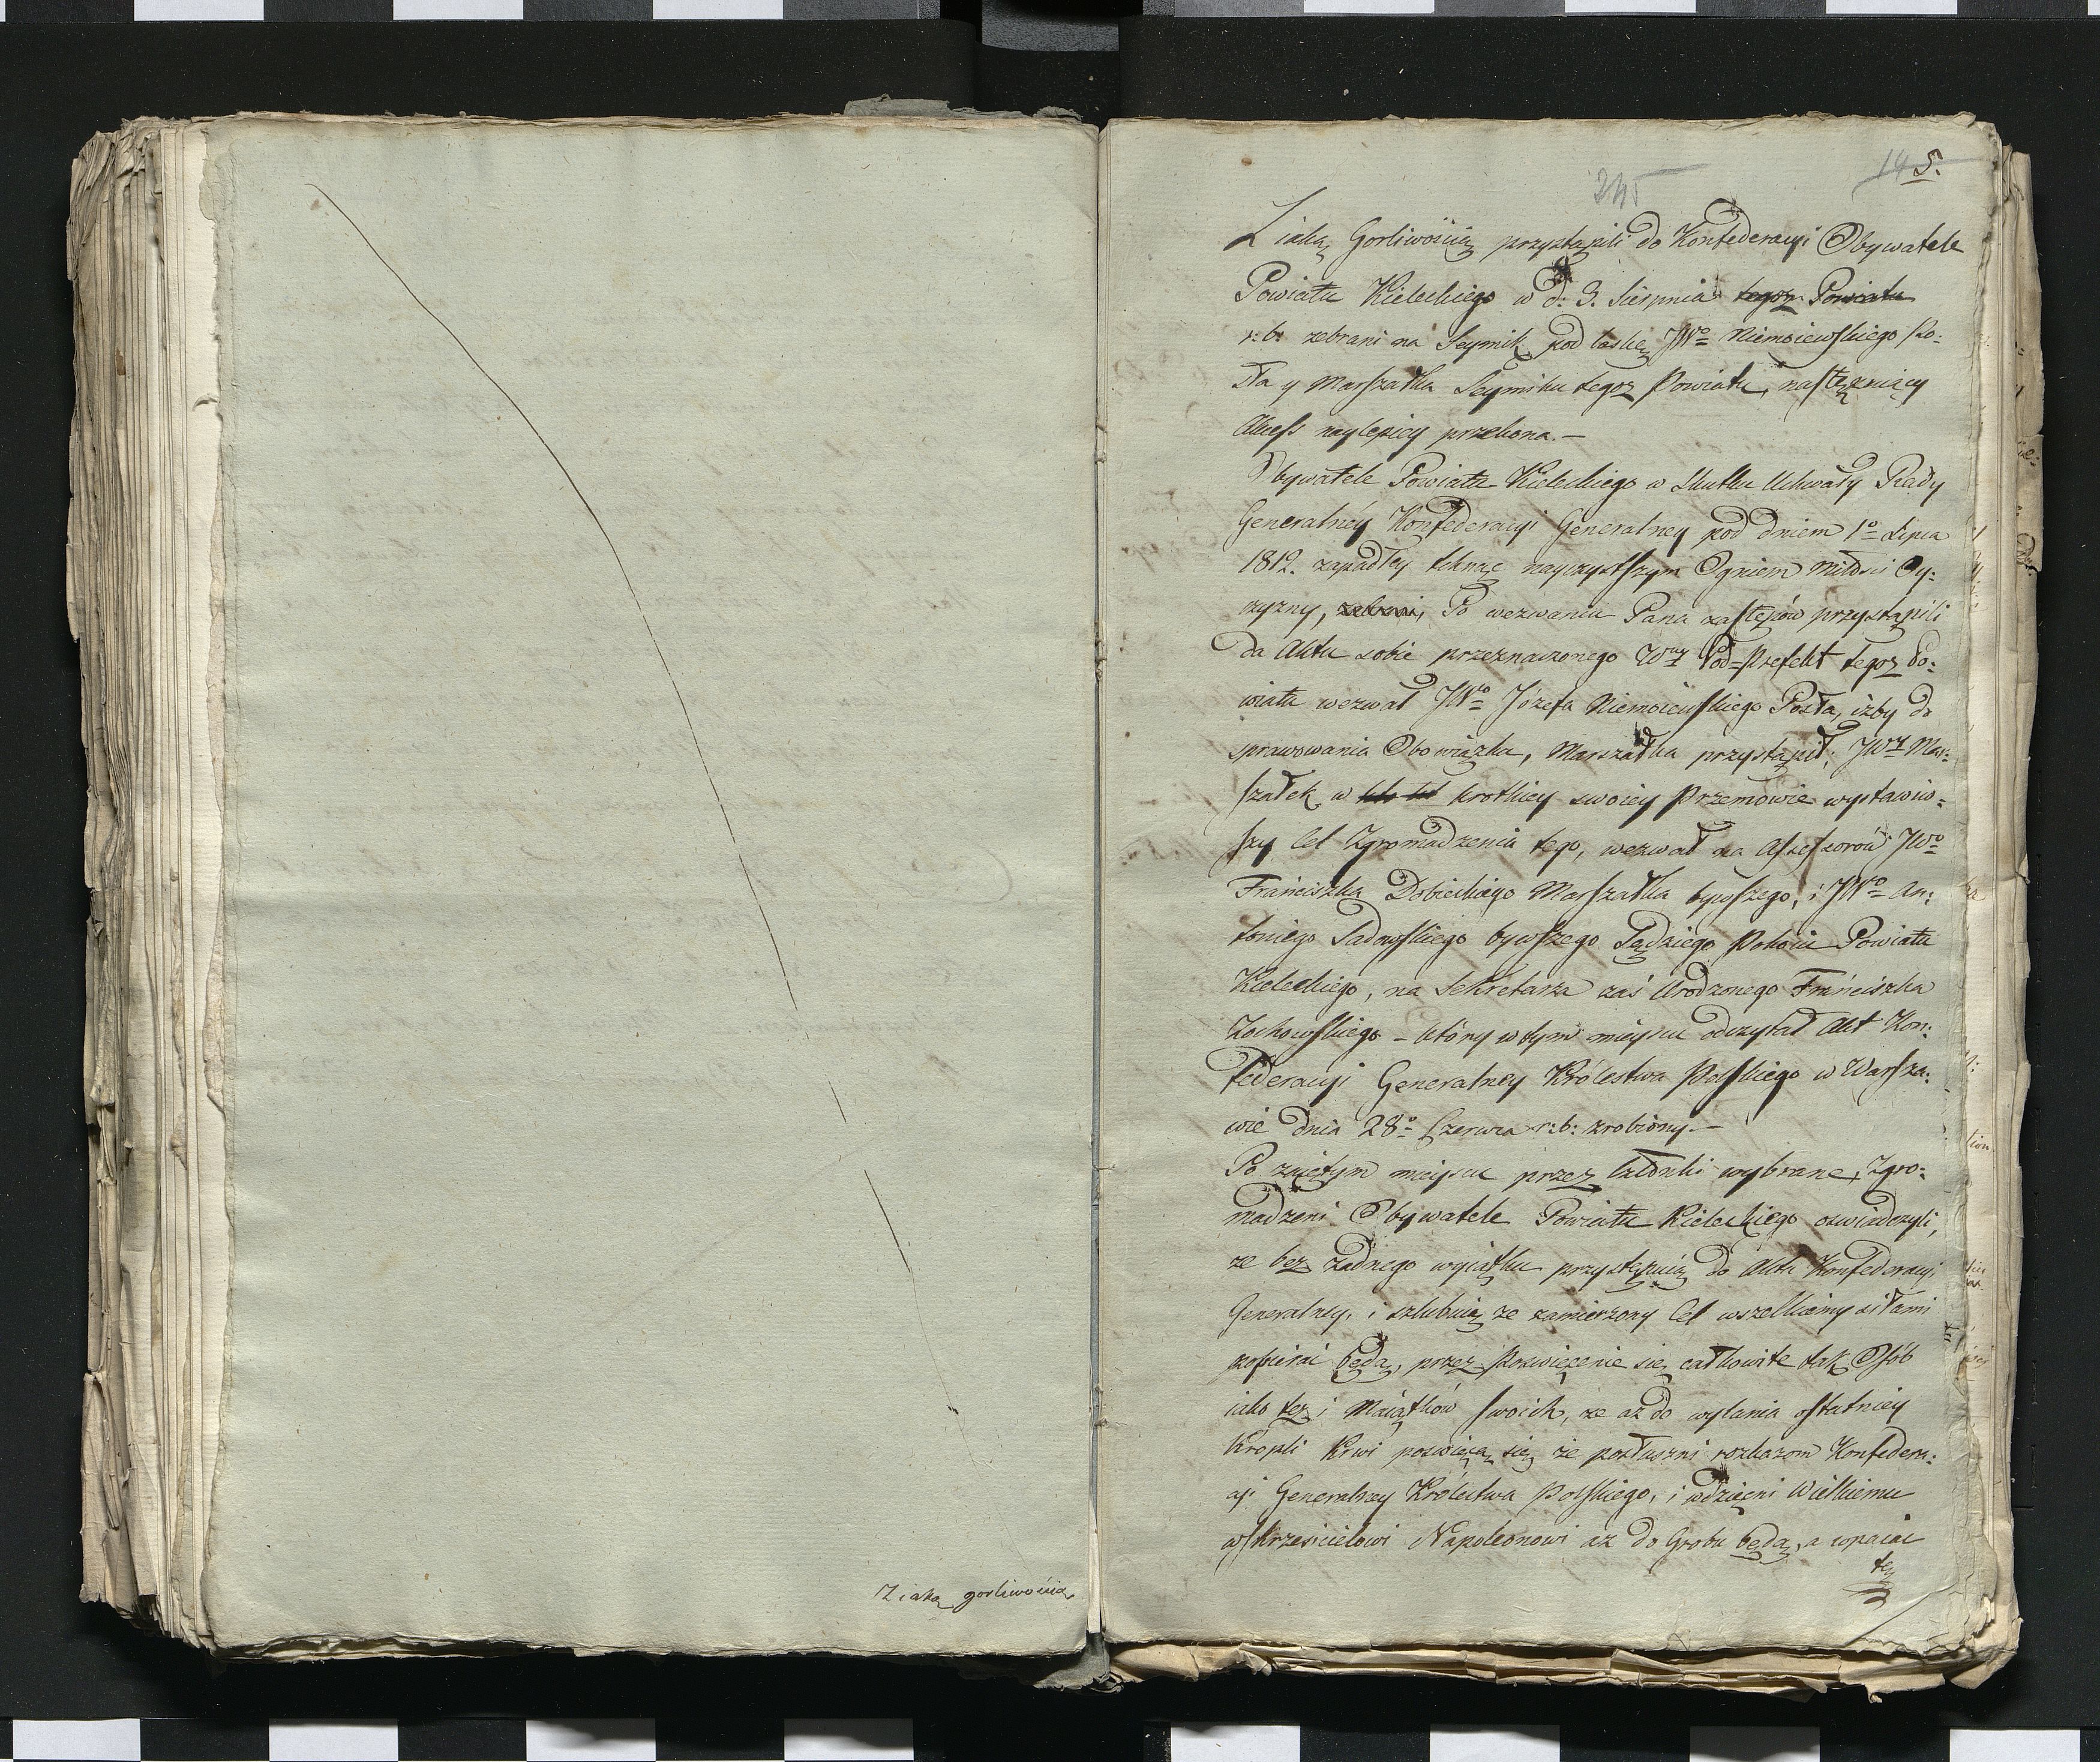 Z iaką gorliwością
245
145.
Z iaką Gorliwością przystąpili do Konfederacyi Obywatele
Powiatu Kieleckiego w d: 3. Sierpnia tegoz Powiatu
r: b: zebrani na Seymik pod laską JWo Niemoiewskiego Po=
sła y Marszałka Seymiku tegoz Powiatu, następuiący
Akcess naylepiey przekona. —
Obywatele Powiatu Kieleckiego w skutku Uchwały Rady
Generalnéy Konfederacyi Generalney pod dniem 1o Lipca
1812. zapadłey tchnąc nayczystszym Ogniem miłosci Oy=
czyzny, zebrani, Po wezwaniu Pana zastępów przystąpili
do Aktu sobie przeznaczonego Wny Pod-Prefekt tegoz Po=
wiatu wezwał JWo Józefa Niemoiewskiego Posła, izby do
sprawowania Obowiązku, Marszałka przystąpił; JWy Mar=
szałek w krotkiey swoiey Przemowie wystawiw=
szy Cel Zgromadzenia tego, wezwał na Assessorów JWo
Franciszka Dobieckiego Marszałka bywszego, i JWo An=
toniego Sadowskiego bywszego Sędziego Pokoiu Powiatu
Kieleckiego, na Sekretarza zaś Urodzonego Franciszka
Zochowskiego – który w tym mieyscu odczytał Akt Kon=
federacyi Generalney Królestwa Polskiego w Warsza=
wie dnia 28o Czerwca r: b: zrobiony. —
Po zaiętym mieyscu przez Członki wybrane, Zgro=
madzeni Obywatele Powiatu Kieleckiego oswiadczyli,
ze bez zadnego wyiątku przystępuią do Aktu Konfederacyi
Generalney, i szlubuią ze zamierzony Cel wszelkiemy siłami
popierać będą, przez Poswięcenie się całkowite tak Osób
iako tez i Maiątków swoich, ze az do wylania ostatniey
Kropli Krwi poswięcą się ze posłuszni rozkazom Konfedera=
cyi Generalney Królestwa Polskiego, i wdzięcni Wielkiemu
wskrzesicielowi Napoleonowi az do Grobu będą, a wpaiać